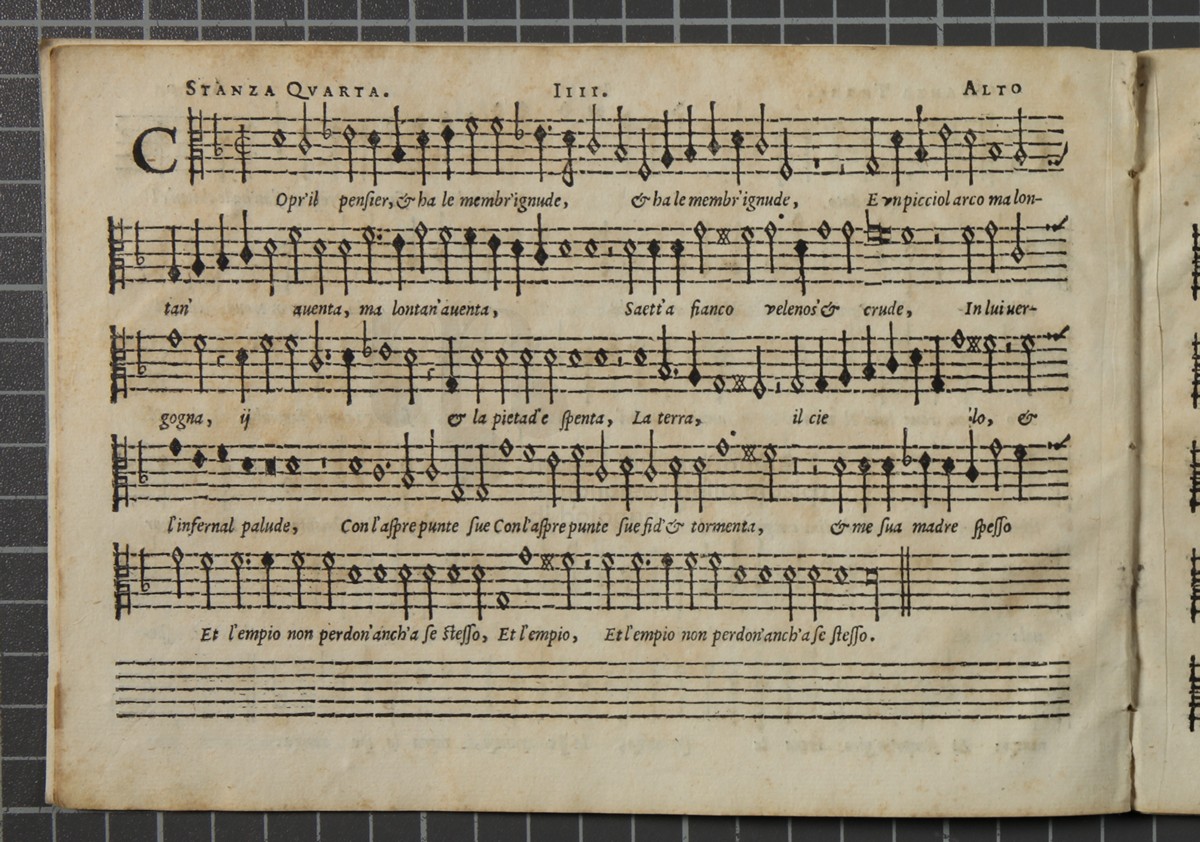 STANZA QVARTA. IIII. ALTO
COpr'il pensier, & ha le membr'ignude, & ha le membr'ignude, E vn picciol arco ma lon-
tan' auenta, ma lontan'auenta, Saett'a fianco velenos'& crude, In lui uer-
gogna, ij & la pietad'e spenta, La terra, il cie lo, &
l'infernal palude, Con l'aspre punte sue Con l'aspre punte sue fid'& tormenta, & me sua madre spesso
Et l'empio non perdon'anch'a se stesso, Et l'empio, Et l'empio non perdon'anch'a se stesso.